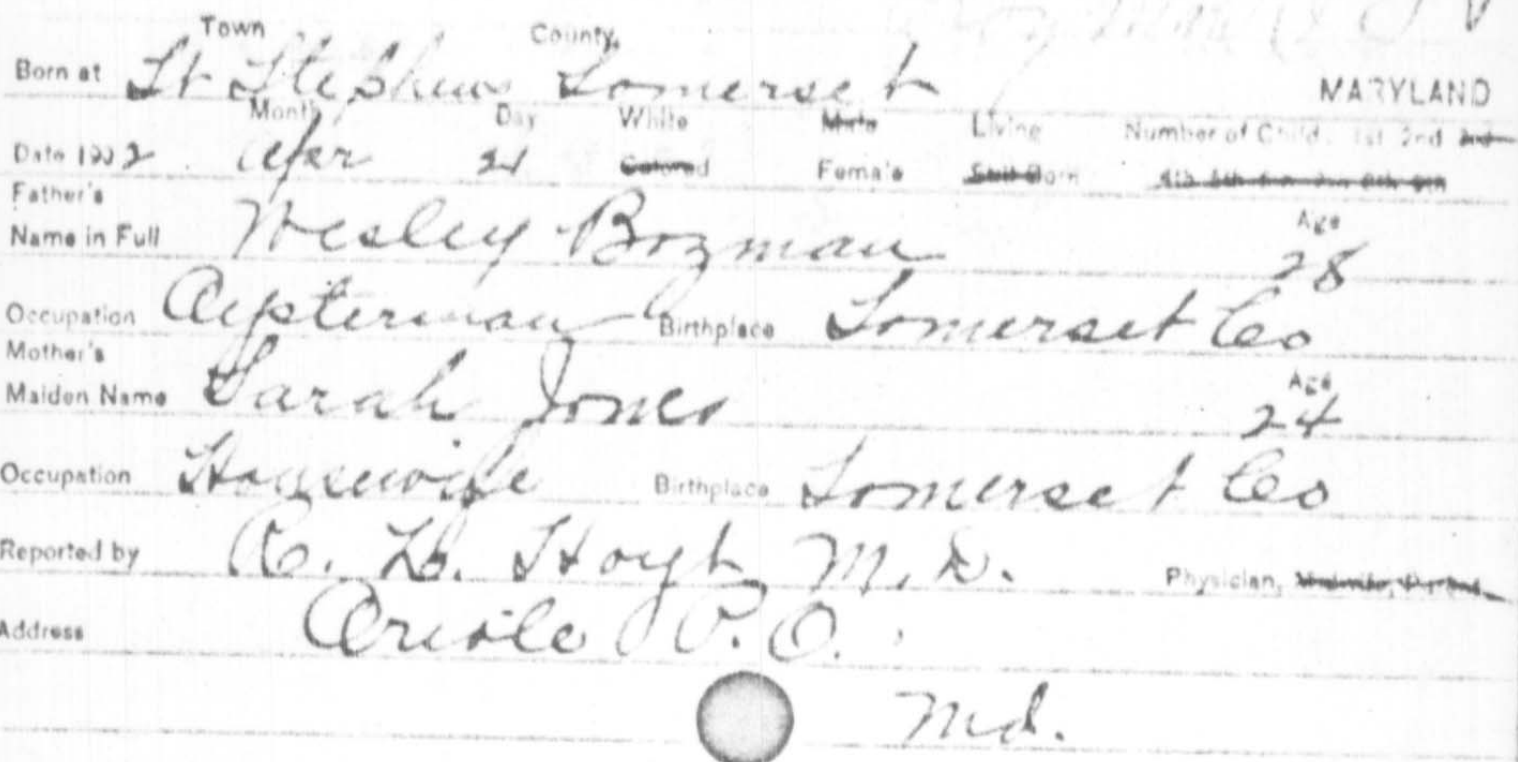 Town County,
Born at St Stephens Somerset MARYLAND
Month Day White Male Living Number of Child. 1st 2nd 3rd
Date 1902 Apr 21 Colored Female Still Born 4th 5th 6th 7th 8th 9th
Father's Age
Name in Full Wesley Bozman 28
Occupation Oysterman Birthplace Somerset Co
Mother's Age
Maiden Name Sarah Jones 24
Occupation Housewife Birthplace Somerset Co
Reported by Hoyt, M.D. Physician, Midwife, Parent
Address Oriole P.O.
Md.